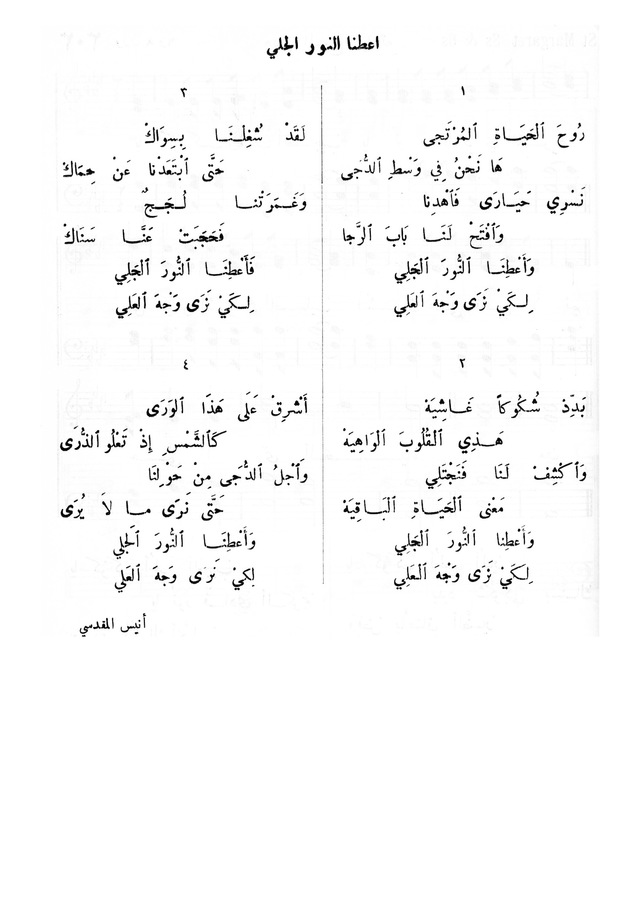 اعطنا النور الجلي
١
رُوحَ ٱلْحَيَاةِ ٱلمُرْتَجى
هَا نَحْنُ فِي وَسْطِ ٱلدُّجى
نَسْرِي حَيَارَى فَٱهْدِنا
وَٱفْتَحْ لَنَا بَابَ ٱلرَّجا
وَأَعْطِنَا ٱلنُّورَ ٱلْجَلِي
لِكَيْ نَرَى وَجْهَ ٱلعَلِي
٢
بَدِّدْ شُكُوكاً غَاشِيَهْ
هَذِي ٱلْقُلُوبَ ٱلْوَاهِيَهْ
وَٱكْشِفْ لَنَا فَنَجْتَلِي
مَعْنى ٱلْحَيَاةِ ٱلْبَاقِيَهْ
وَأَعْطِنا ٱلنُّورَ ٱلْجَلِي
لِكَيْ نَرَى وَجْهَ ٱلْعَلِي
٣
لَقَدْ شُغِلْنَا بِسِوَاكْ
حَتَّى ٱبْتَعَدْنا عَنْ حِمَاكْ
وَغَمَرَتْنا لُجَجٌ
فَحَجَبَتْ عَنَّا سَنَاكْ
فَأَعْطِنَا ٱلنُّورَ ٱلْجَلِي
لِكَيْ نَرَى وَجْهَ ٱلعَلِي
٤
أَشْرِقْ عَلَى هَذَا ٱلوَرَى
كَٱلشَّمْسِ إِذْ تَعْلُو ٱلذُّرَى
وَٱجْلُ ٱلدُّجَى مِنْ حَوْلِنَا
حَتَّى نَرَى ما لاَ يُرَى
وَأَعْطِنَا ٱلنُّورَ ٱلْجَلِي
لِكَيْ نَرَى وَجْهَ ٱلعَلِي
أنيس المقدسي